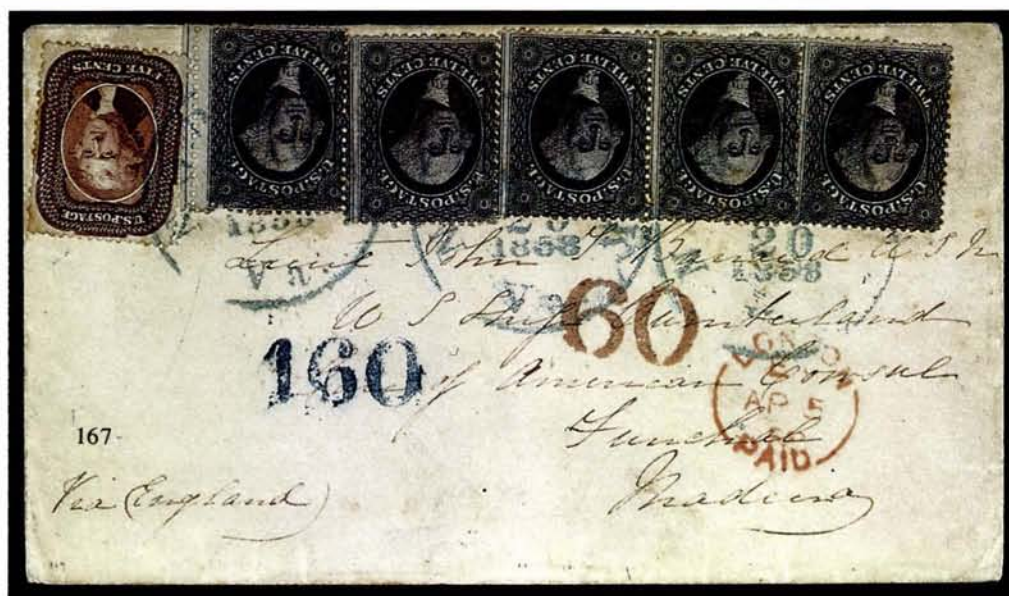 FIVE CENTS
U.S. POSTAGE
TWELVE CENTS
U.S. POSTAGE
TWELVE CENTS
U.S. POSTAGE
TWELVE CENTS
U.S. POSTAGE
TWELVE CENTS
U.S. POSTAGE
TWELVE CENTS
U.S. POSTAGE
20
1858
20
1858
VA
Lieut John U S N
U S Ship Cumberland
of American Consul
Funchal
Madeira
Via England
160
60
LONDON
AP 5
PAID
167